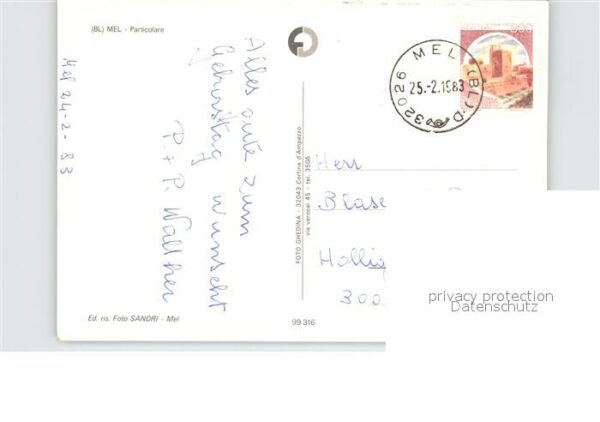 (BL) MEL - Particolare
Mel 24-2-83
Alles gute zum
Geburtstag wünscht
P. + P. Walther
Ed. ris. Foto SANDRI - Mel
FOTO GHEDINA - 32043 Cortina d'Ampezzo
via verocai 45 - tel. 3556
99.316
32026 MEL (BL)-D
25.-2.1983
Herr
Blase
Hollig
300
privacy protection
Datenschutz